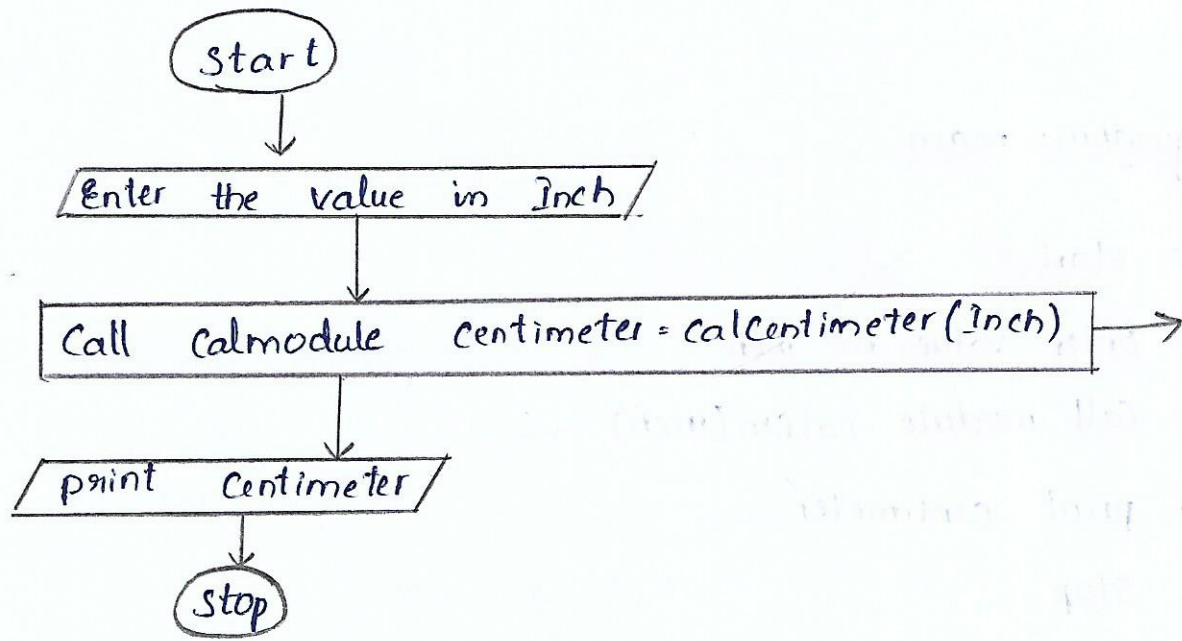 Start
Enter the value in Inch
Call Calmodule Centimeter = calCentimeter(Inch)
print Centimeter
Stop